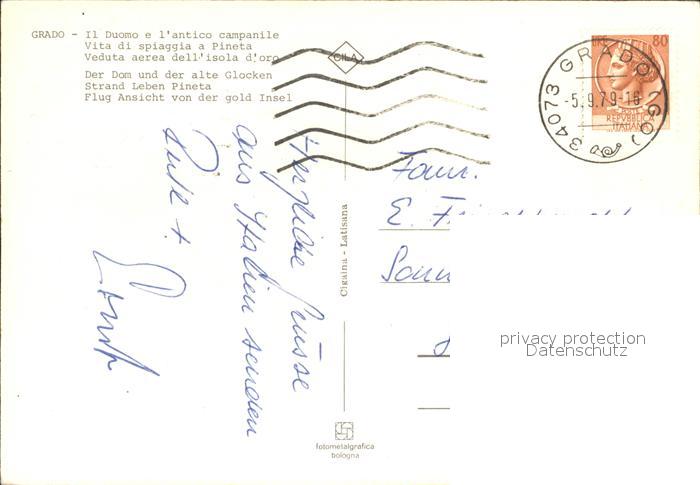 GRADO - Il Duomo e l'antico campanile
Vita di spiaggia a Pineta
Veduta aerea dell'isola d'oro
Der Dom und der alte Glocken
Strand Leben Pineta
Flug Ansicht von der gold Insel
CILA
LIRE 80
POSTE
REPVBBLICA
ITALIANA
34073 GRADO (GO)
-5.9.79-18
Herzliche Grüsse
aus Italien senden
+
Ernst
Fam.
E.
Cigaina - Latisana
privacy protection
Datenschutz
fotometalgrafica
bologna